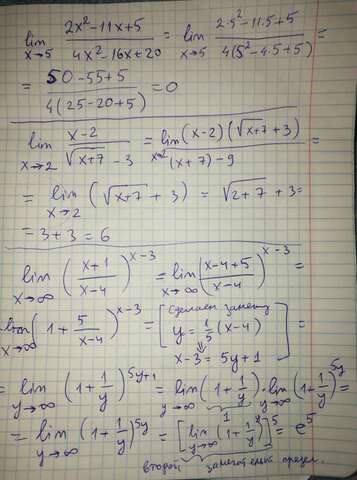 lim x→5 (2x² - 11x + 5)/(4x² - 16x + 20) = lim x→5 (2·5² - 11·5 + 5)/(4(5² - 4·5 + 5)) =
= (50 - 55 + 5)/(4(25 - 20 + 5)) = 0
lim x→2 (x - 2)/(√(x+7) - 3) = lim x→2 (x-2)(√(x+7) + 3)/((x+7) - 9) =
= lim x→2 (√(x+7) + 3) = √(2+7) + 3 =
= 3 + 3 = 6
lim x→∞ ((x+1)/(x-4))^(x-3) = lim x→∞ ((x-4+5)/(x-4))^(x-3) =
lim x→∞ (1 + 5/(x-4))^(x-3) = [сделаем замену y = 1/5 (x-4) x-3 = 5y+1] =
= lim y→∞ (1 + 1/y)^(5y+1) = lim y→∞ (1 + 1/y) · lim y→∞ (1 + 1/y)^(5y) =
1
= lim y→∞ (1 + 1/y)^(5y) = [lim y→∞ (1 + 1/y)^y]^5 = e^5
второй замечательный предел.